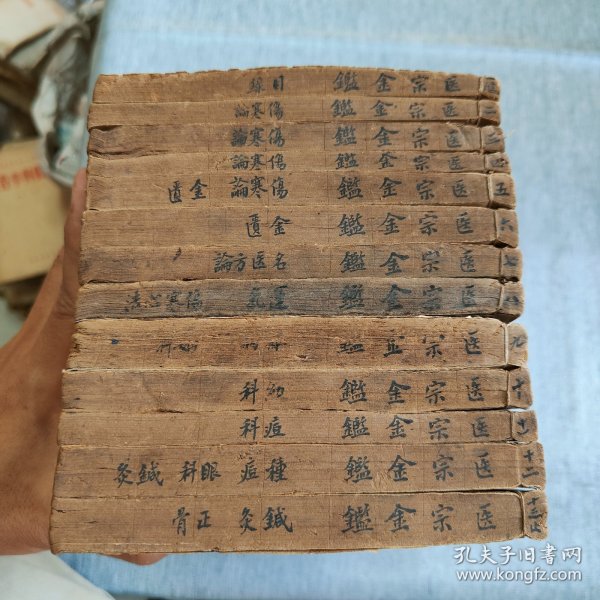 医宗金鑑 目録
二 医宗金鑑 傷寒論
三 医宗金鑑 傷寒論
四 医宗金鑑 傷寒論
五 医宗金鑑 傷寒論 金匱
六 医宗金鑑 金匱
七 医宗金鑑 名医方論
八 医宗金鑑 運氣 傷寒心法
九 医宗金鑑
十 医宗金鑑 幼科
十一 医宗金鑑 痘科
十二 医宗金鑑 種痘 眼科 鍼灸
十三止 医宗金鑑 鍼灸 正骨
孔夫子旧书网
www.kongfz.com